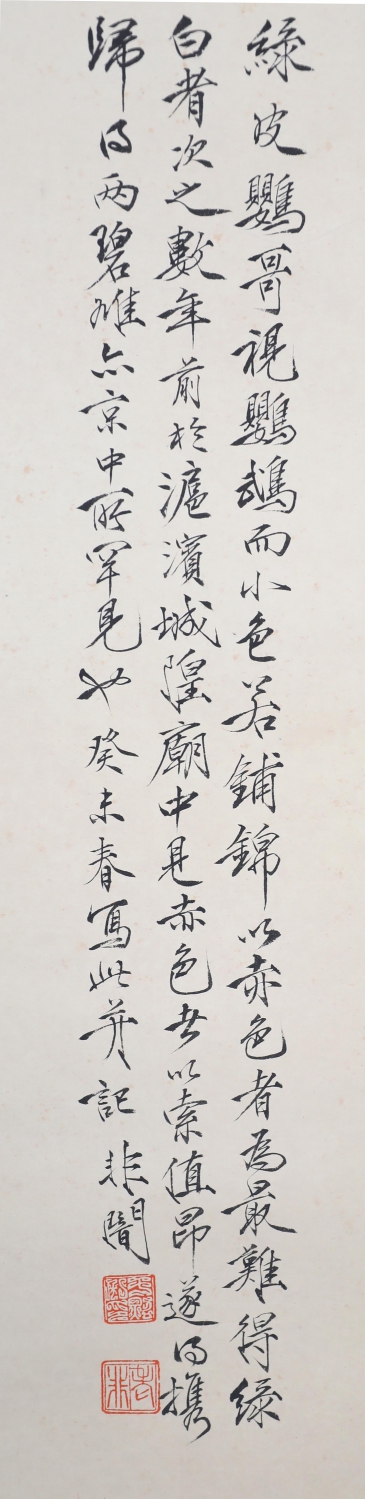 綠皮鸚哥視鸚鵡而小色若鋪錦以赤色者為最難得綠
白者次之數年前於滬濱城隍廟中見赤色者以索值昂遂得携
歸得两碧雄亦京中所罕見也癸未春寫此并記非闇
老非